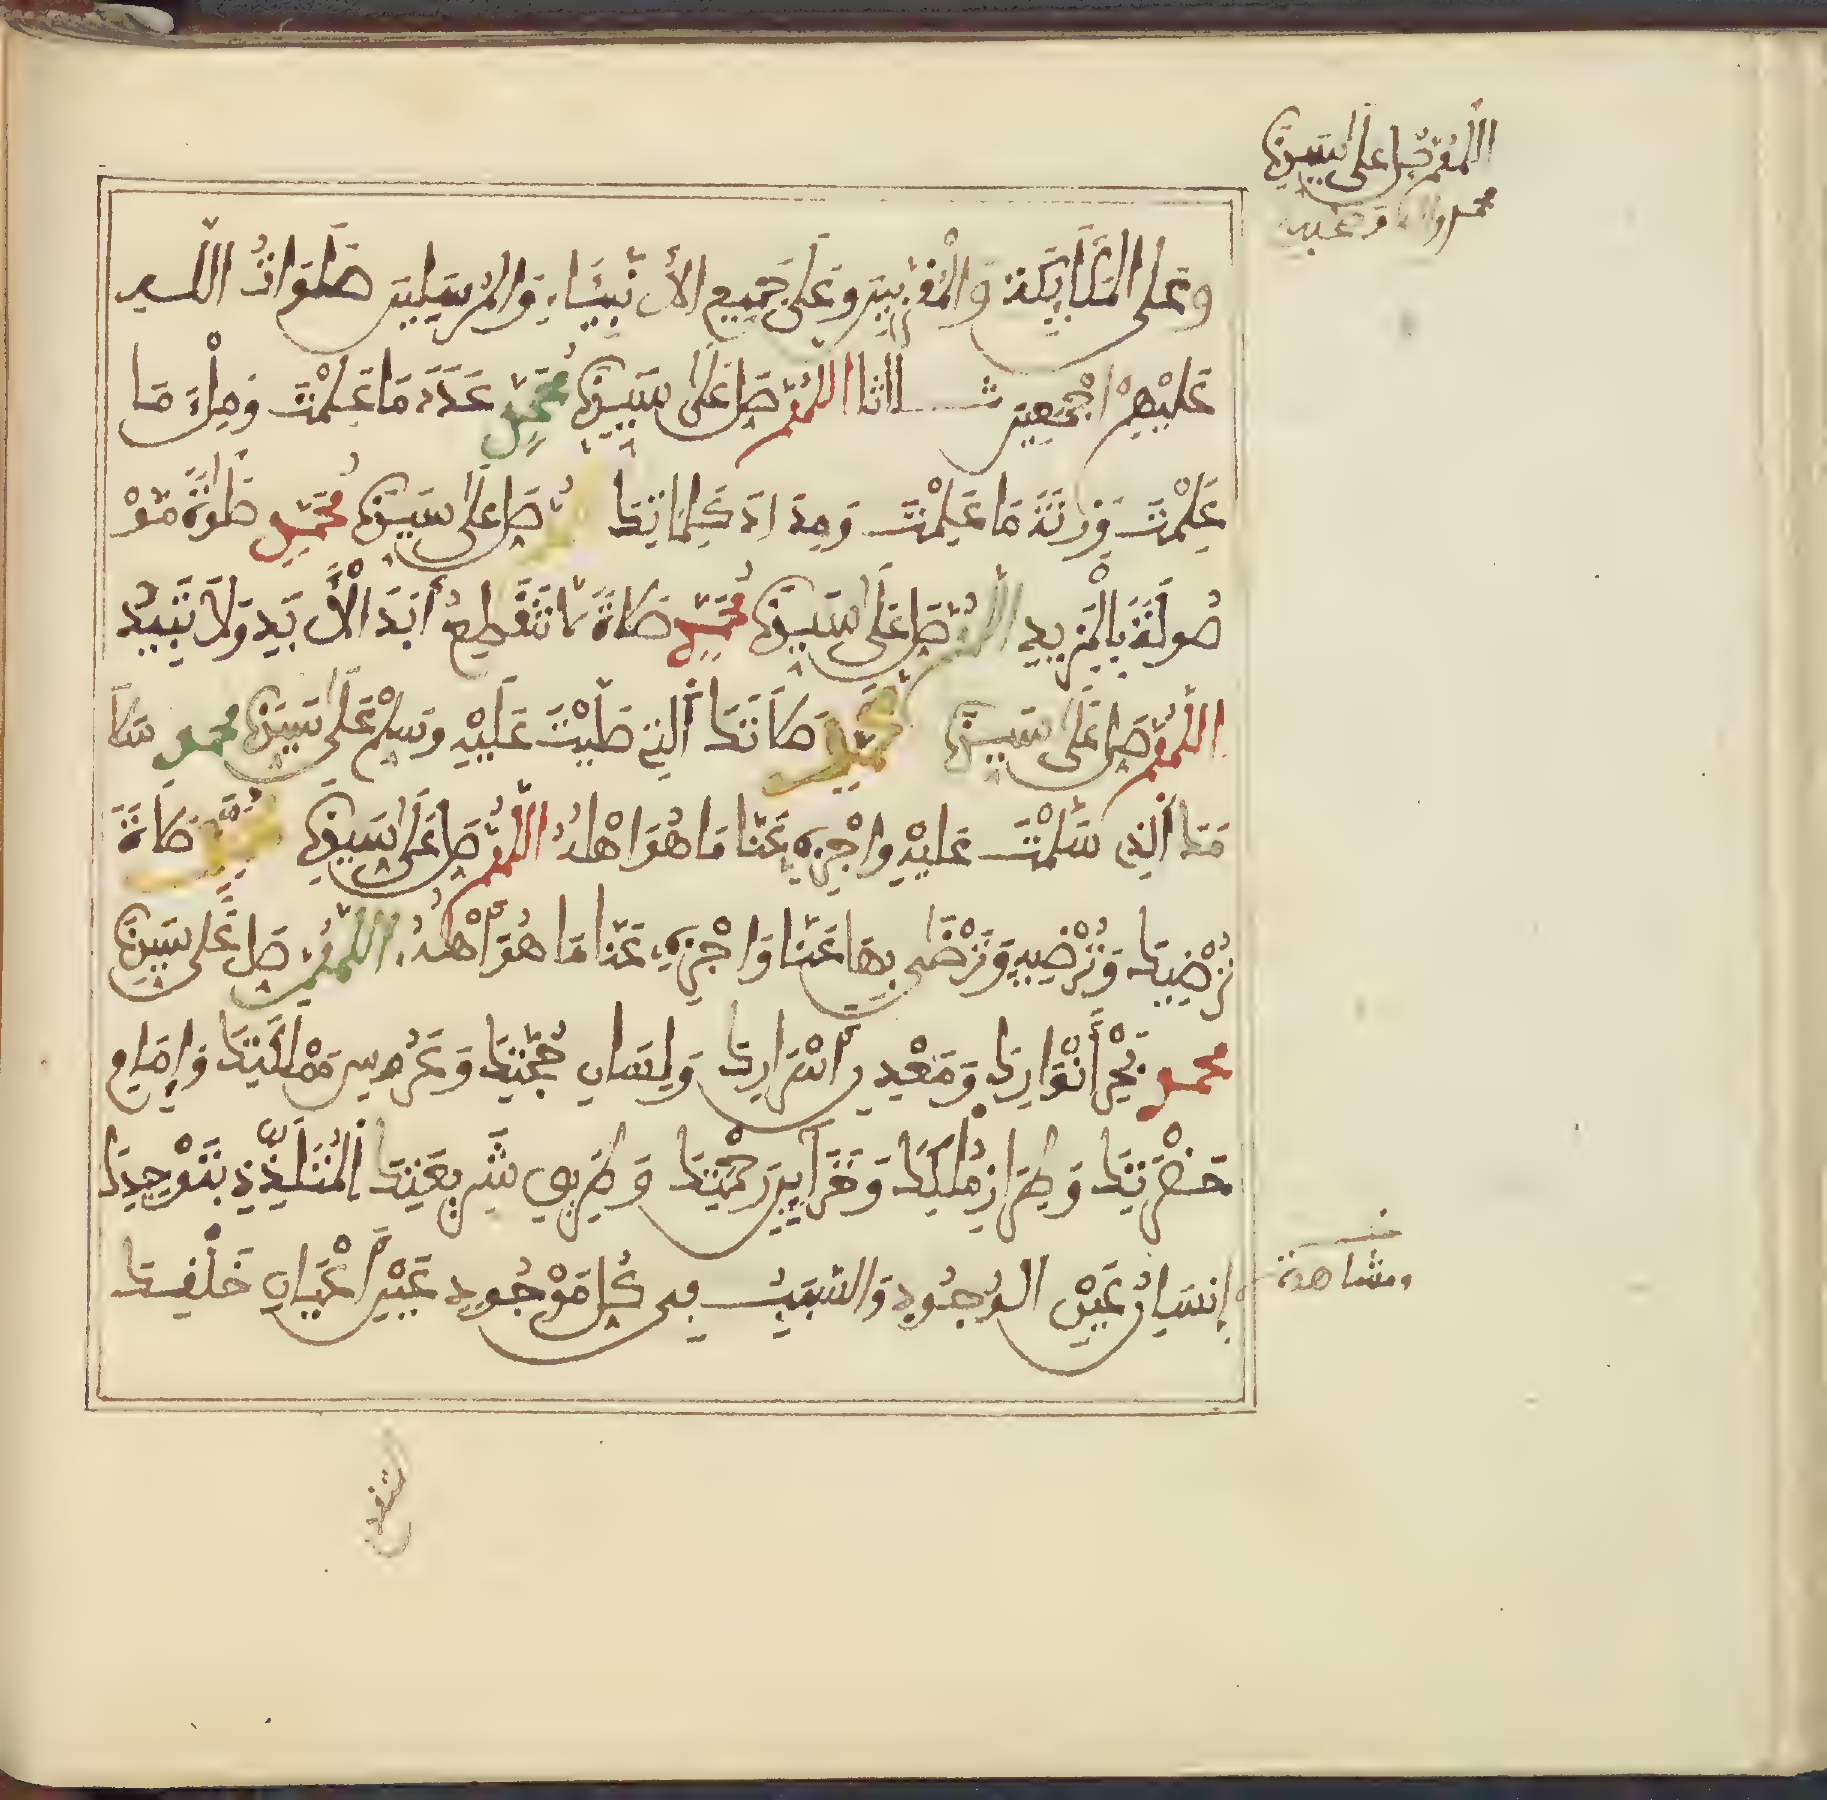 اللهم صل على سيدنا
محمد وآله وصحبه
وعلى الملائكة والمقربين وعلى جميع الأنبياء والمرسلين صلوات الله
عليهم أجمعين ثلاثا اللهم صل على سيدنا محمد عدد ما علمت وملء ما
علمت وزنة ما علمت ومداد كلماتك اللهم صل على سيدنا محمد صلوة مو
صولة بالمزيد اللهم صل على سيدنا محمد صلاة لا تنقطع أبد الأبد ولا تبيد
اللهم صل على سيدنا محمد صلاتك التي صليت عليه وسلم على سيدنا محمد سلا
مك الذي سلمت عليه واجزه عنا ما هو اهله اللهم صل على سيدنا محمد صلاة
ترضيك وترضيه وترضى بها عنا واجزه عنا ما هو أهله اللهم صل على سيدنا
محمد بحر أنوارك ومعدن أسرارك ولسان حجتك وعروس مملكتك وإمام
حضرتك وطراز ملكك وخزائن رحمتك وطريق شريعتك المتلذذ بتوحيدك
ومشاهدتك
إنسان عين الوجود والسبب في كل موجود عين أعيان خلقك
المتقدم